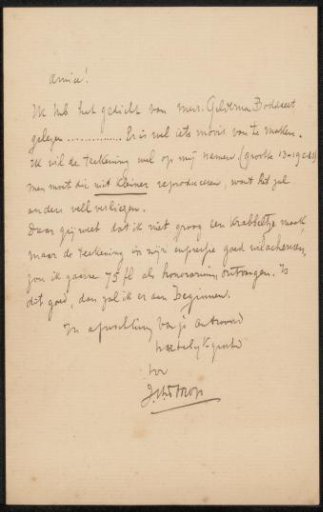 Amice!
Ik heb het gedicht van mevr. Gelderman Boddaert
gelezen ................ Er is wel iets moois van te maken.
Ik wil de teekening wel op mij nemen (grootte 13-19 cM)
men moet die niet kleiner reproduceeren, want het zal
anders veel verliezen.
Daar gij weet dat ik niet graag een krabbeltje maak
maar de teekening in mijn expressie goed
zou ik gaarne 75 fl als honorarium ontvangen. Is
dit goed, dan zal ik er aan beginnen.
In afwachting van je antwoord
hartelijk gegroet
Jth Toorop